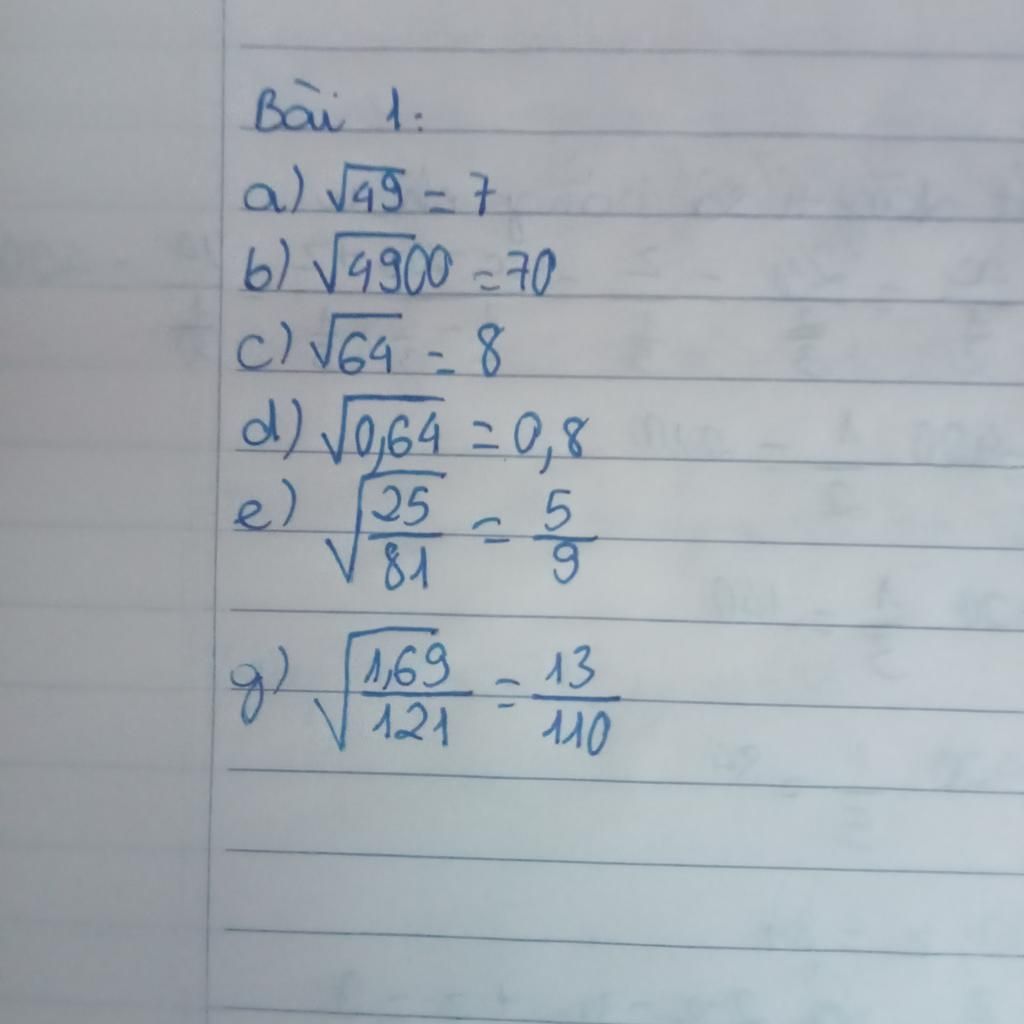 Bài 1:
a) √49 = 7
b) √4900 = 70
c) √64 = 8
d) √0,64 = 0,8
e) √(25/81) = 5/9
g) √(1,69/121) = 13/110